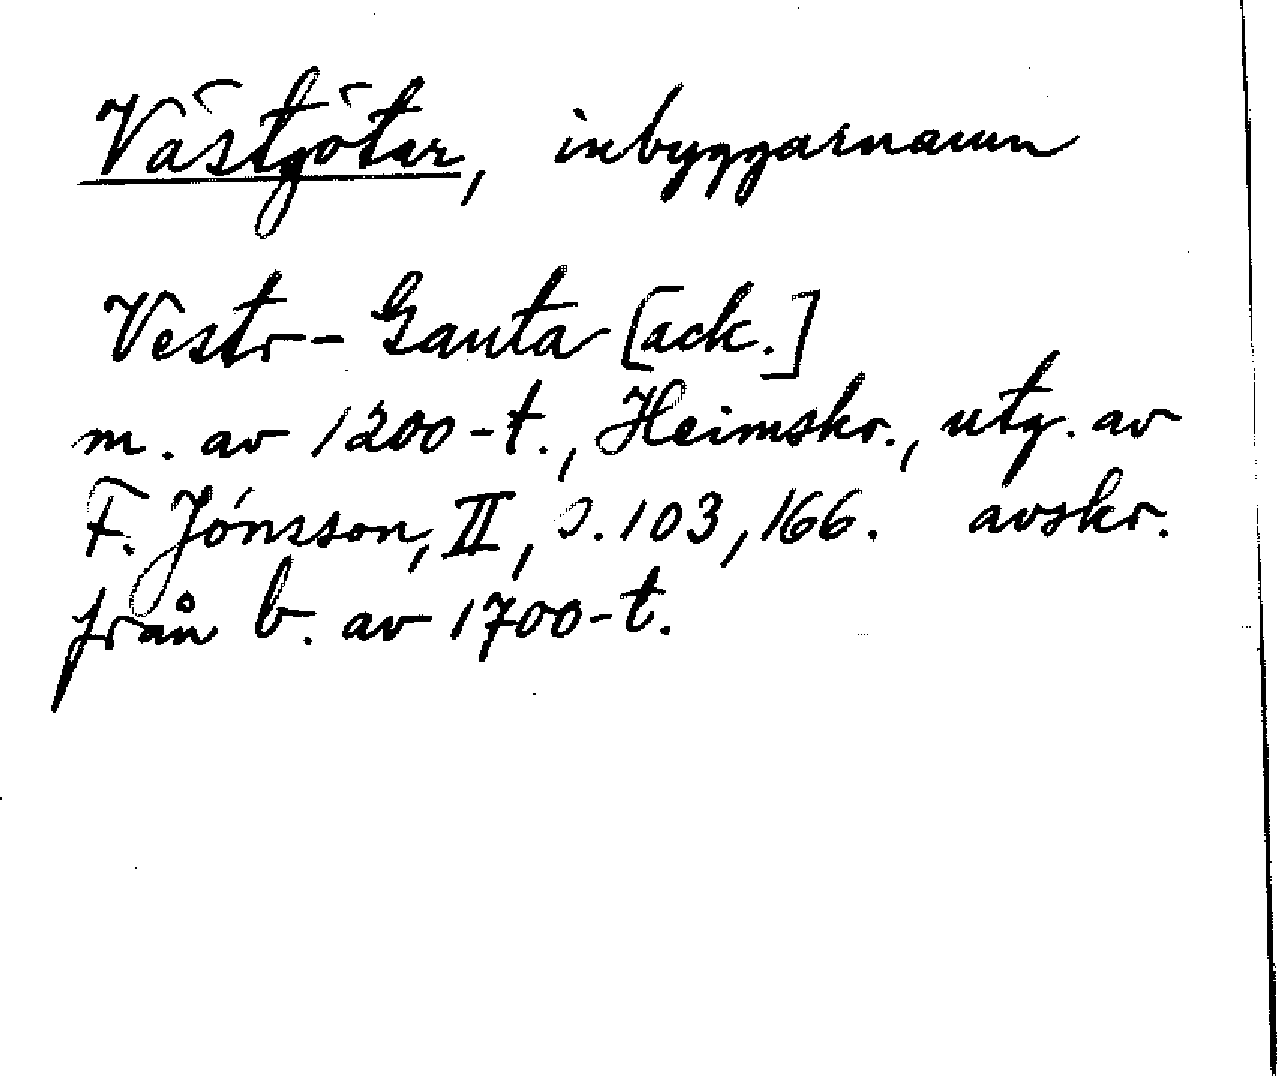 Västgötar, inbyggarnamn
Vestr-Gauta [ack.]
m. av 1200-t., Heimskr., utg. av
F. Jónsson, II, s. 103, 166. avskr.
från b. av 1700-t.